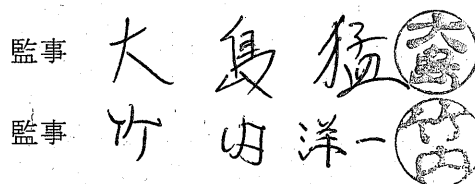 監事 大島猛 大島
監事 竹内洋一 竹内